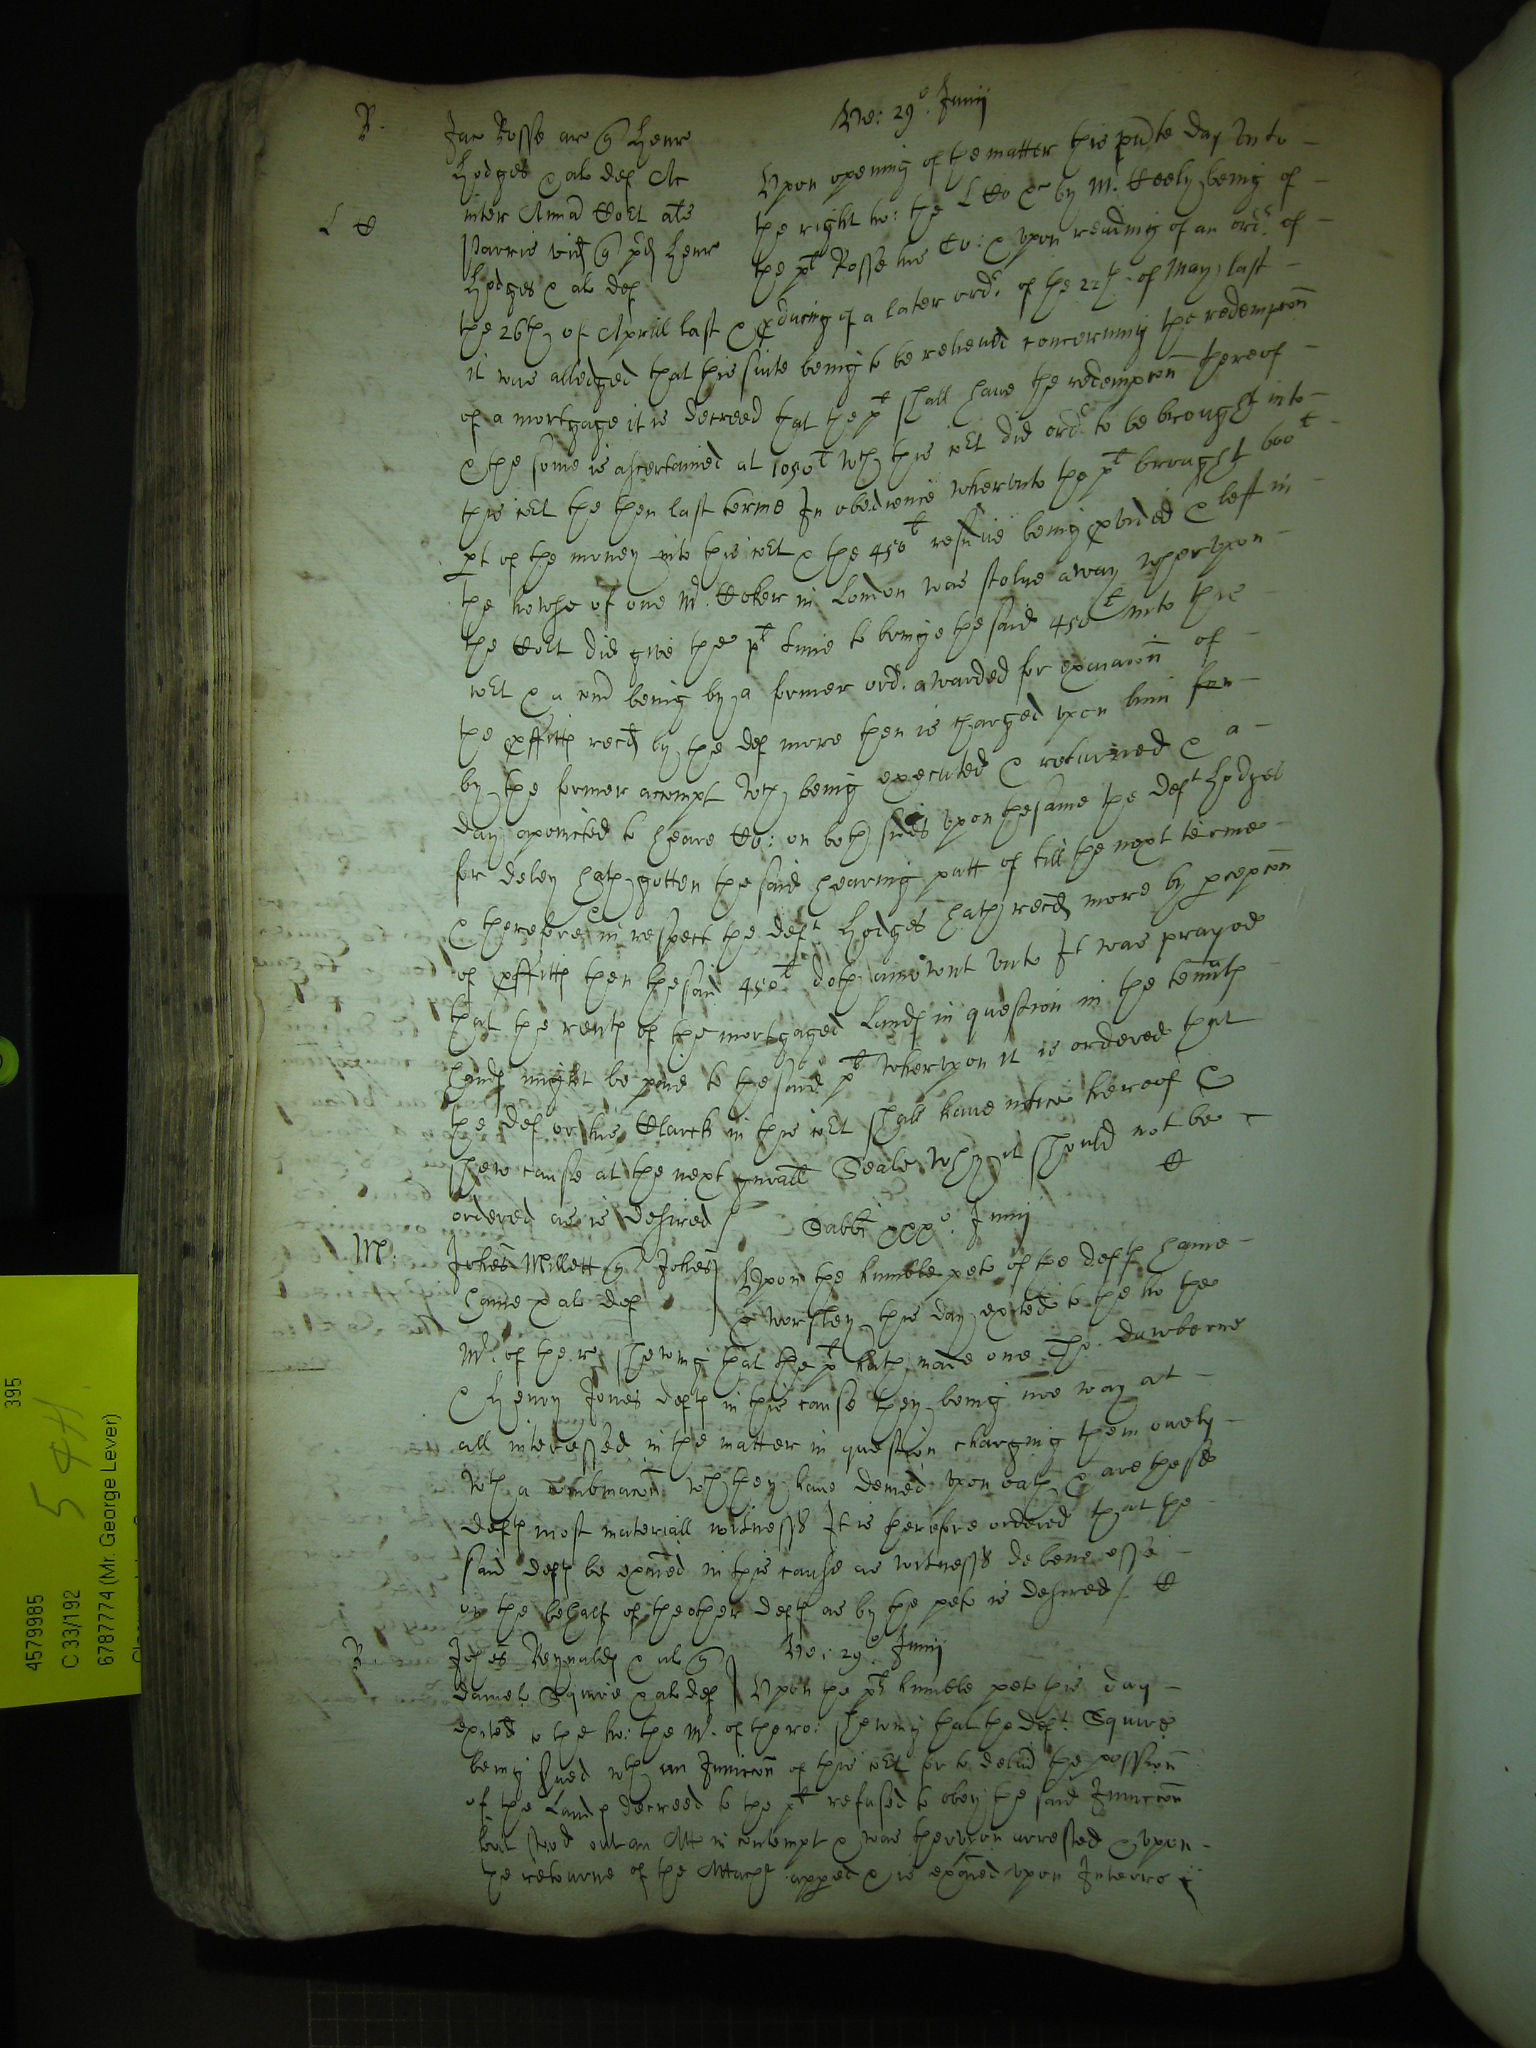 Ve: 29° Junij
R.
Jac Rosse ar q Henr
Hodges & al def Ac
L C
inter Anna Colt als
Norris vid q pd Henr
Hodges & al def
Upon opening of the matter this pnte day unto
the right ho: the L Co &c by Mr. Keely being of
the plt Rosse his Co: & upon reading of an ordr. of
the 26th of Aprill last & pducing of a later ordr. of the 22th of May last
it was alledged that this suite being to be releived concerning the redempcon
of a mortgage it is decreed that the plt shall have the redempcon thereof
& the some is ascertained at 1050l wch this cot did ordr. to be brought into
this cot the then last terme In obedience wherunto the plt brought 600l
pt of the money into this cot & the 450l residue being pvided & left in
the howse of one Mr. Coker in London was stolne away wherupon
the Cot did give the plt time to bringe the said 450l into this
cot & a comd being by a former ordr. awarded for exacon of
the pffitts recd by the def more then is charged upon him
by the former accompt wch being executed & returned & a
day apointed to heare Co: on both sides upon the same the deft Hodges
for deley hath gotten the said hearing putt of till the next terme
& therefore in respect the deft Hodges hath recd more by pcepcon
of pffitts then the said 450l doth amownt unto It was prayed
that the rents of the mortgaged Lands in question in the tennts
hands might be paid to the said plt wherupon it is ordered that
the def or his Clark in this cot shall have notice hereof &
shew cause at the next gnrall Seale why it should not be
ordered as is desired / C
Sabbi xxx° Junij
M.
Johes Millett q Johes
Hame & al def
Upon the humble petc of the defts Hame
& Worsley this day exited to the ho the
Mr. of the ro shewing that the plt hath made one Tho. Dawberne
& Henry Jones defts in this cause they being noe way at
all interessed in the matter in question charging them onely
wth a combinacon wch they have denied upon oath & are these
defts most materiall witnesses It is therefore ordered that the
said defts be exaied in this cause as witnesses de bene esse
on the behalf of the other defts as by the petc is desired /. C
Ve: 29° Junij
R.
Johes Reynalds & al q
Daniel Squire & al def
Upon the plts humble petc this day
exited to the ho: the Mr. of the ro: shewing that the deft. Squire
being sved wth an Iniuccon of this cot for to delivd the possion
of the Lands decreed to the plt refused to obey the said Iniuccon
but stood out an Att in contempt & was therupon arrested & upon
the retourne of the Attachmt apped & is exaied upon Interro
395
5 4H
4579985
C 33/192
6787774 (Mr. George Lever)